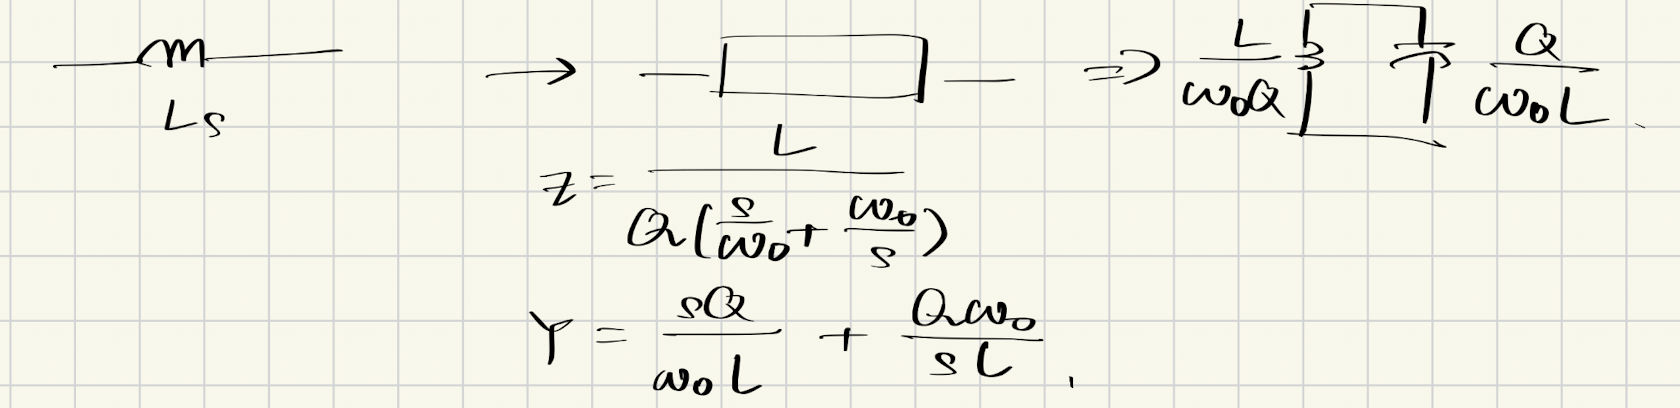 Ls → ⇒ L/(ω₀Q) Q/(ω₀L)
Z = L/(Q(s/ω₀ + ω₀/s))
Y = sQ/(ω₀L) + Qω₀/(sL)